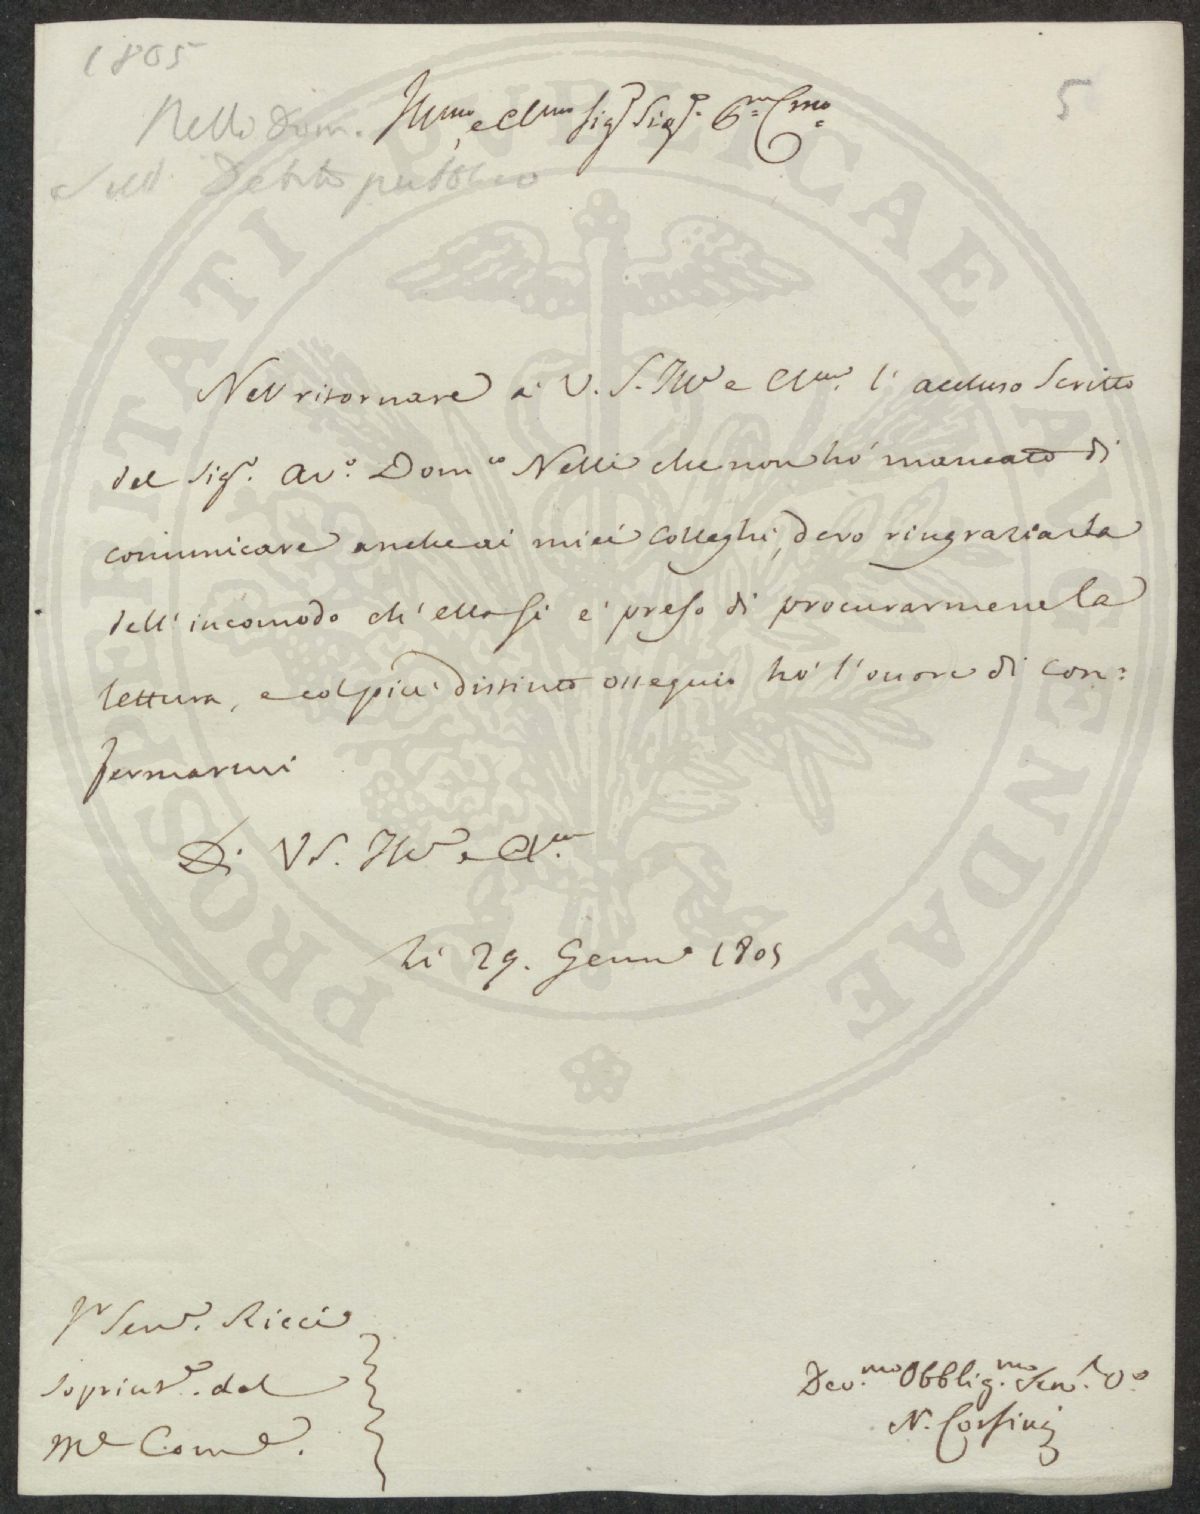 1805
5
Nelli Dom.
Sull Debito pubblico
Ill.mo e Cl.mo Sig.e Sig.e P.ne C.mo
Nell ritornare à V. S. Ill.e e Cl.ma l'accluso Scritto
del Sig.e Av.o Dom.co Nelli che non hó mancato di
comunicare anche ai miei Colleghi, devo ringraziarla
dell'incomodo ch'ella si é preso di procurarmene la
lettura, e col piu distinto ossequio hó l'onore di con=
fermarmi
Di VS. Ill.e e Cl.ma
Li 29. Genn.o 1805
Sen.e Ricci
Soprint.e del
M.e Com.e.
Dev.mo Obblig.mo Ser.e V.o
N. Corsini
PROSPERITATI PVBLICAE AVGENDAE